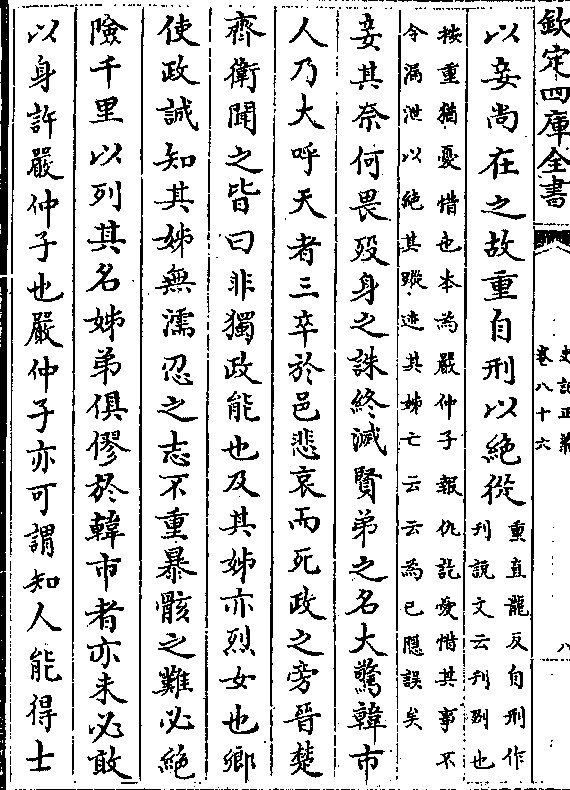 欽定四庫全書
史記正義
卷八十六
八
以妾尚在之故重自刑以絶從
重直龍反自刑作
刋説文云刋剟也
按重猶憂惜也本為嚴仲子報仇訖愛惜其事不
令漏泄以絶其蹤迹其姊亡云云為已隱誤矣
妾其奈何畏歿身之誅終滅賢弟之名大驚韓市
人乃大呼天者三卒於邑悲哀而死政之旁晉楚
齊衛聞之皆曰非獨政能也及其姊亦烈女也鄉
使政誠知其姊無濡忍之志不重暴骸之難必絶
險千里以列其名姊弟俱僇於韓市者亦未必敢
以身許嚴仲子也嚴仲子亦可謂知人能得士